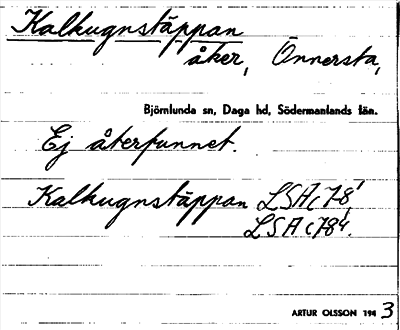 Kalkugnstäppan
åker, Önnersta,
Björnlunda sn, Daga hd, Södermanlands län.
Ej återfunnet.
Kalkugnstäppan LSA c 78'
LSA c 78⁴.
ARTUR OLSSON 1943